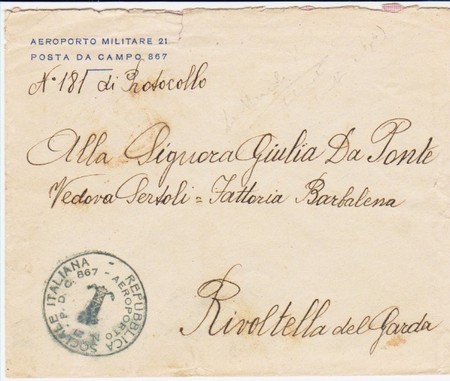 AEROPORTO MILITARE 21
POSTA DA CAMPO 867
N° 181 di Protocollo
Alla Signora Giulia Da Ponte
Vedova Sertoli = Fattoria Barbalena
Rivoltella del Garda
REPUBBLICA SOCIALE ITALIANA
P. D. C. 867 - AEROPORTO